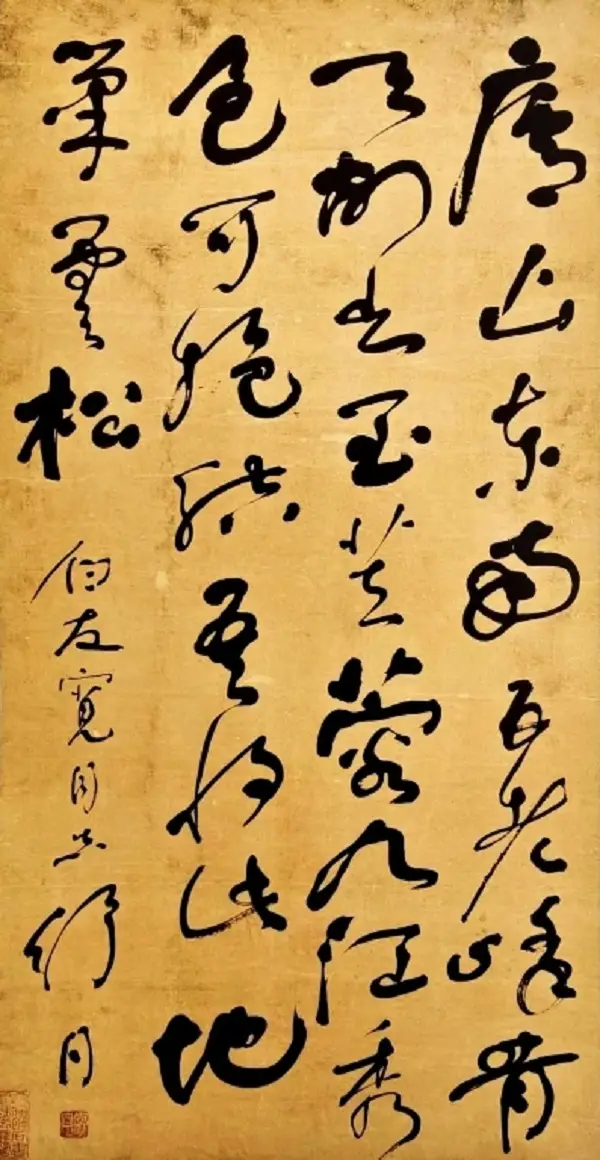 廬山東南五老峰青
天削出金芙蓉九江秀
色可攬結吾將此地
巢雲松